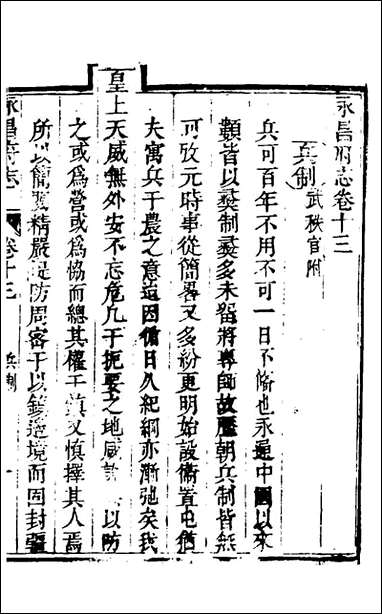 永昌府志卷十三
兵制 武秩官附
兵可百年不用不可一日不脩也永通中國以來
類皆以彛制彛多未習將專師故歴朝兵制皆無
可攷元時事從簡畧又多紛更明始設衞置屯猶
夫寓兵于農之意這因循日久紀綱亦漸弛矣我
皇上天威無外安不忘危凡于扼要之地咸 以防
之或爲營或爲恊而總其權于鎮又慎擇其人焉
所以簡蒐精嚴提防周密于以 邊境而固封疆
永昌府志 卷十三 兵制 一